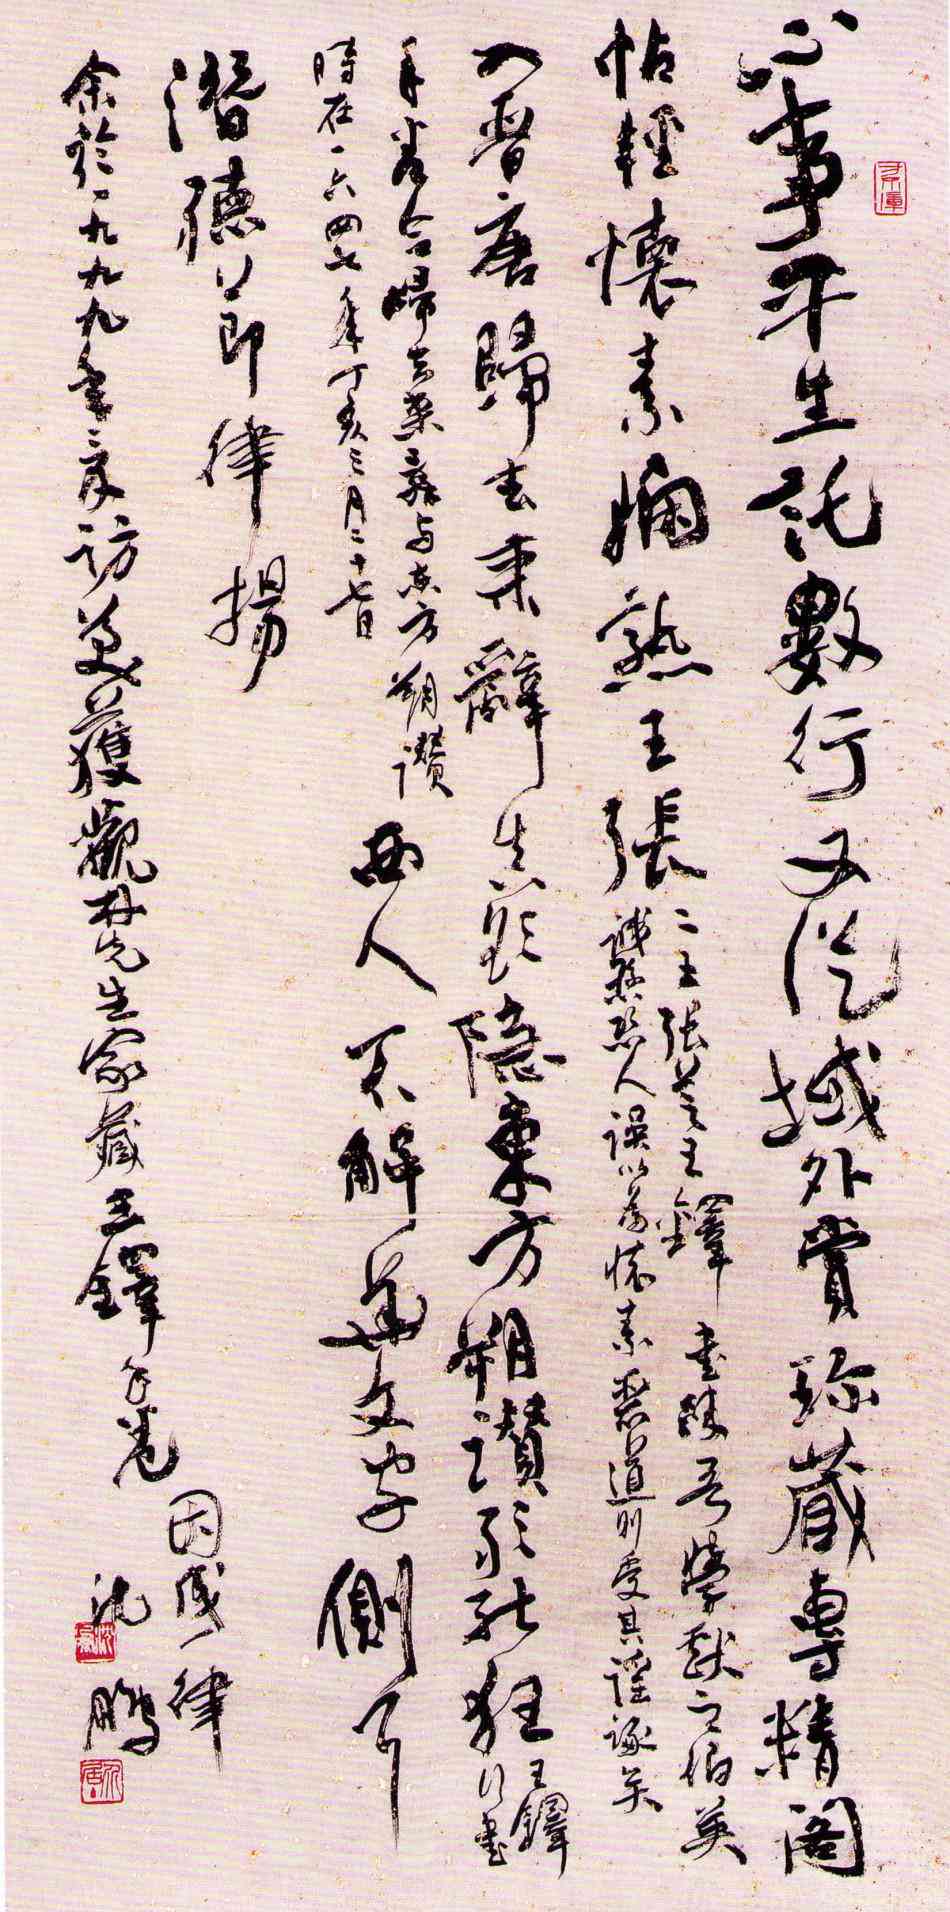 心事平生託數行又從域外賞珍藏專精閣
帖輕懷素嫻熟王張
二王張芝王鐸書跋吾學獻之伯英
人誤以為懷素惡道則受其謠諑矣
入晉唐歸去來辭生隱東方朔讚能狂
王鐸行書
手卷合歸去來辭與東方朔讚
時在一六四七年丁亥三月二十七日
西人不解華文字側耳
潛聽節律揚
余於一九九九年二度訪美獲觀先生家藏王鐸手卷
因成一律
沈鵬